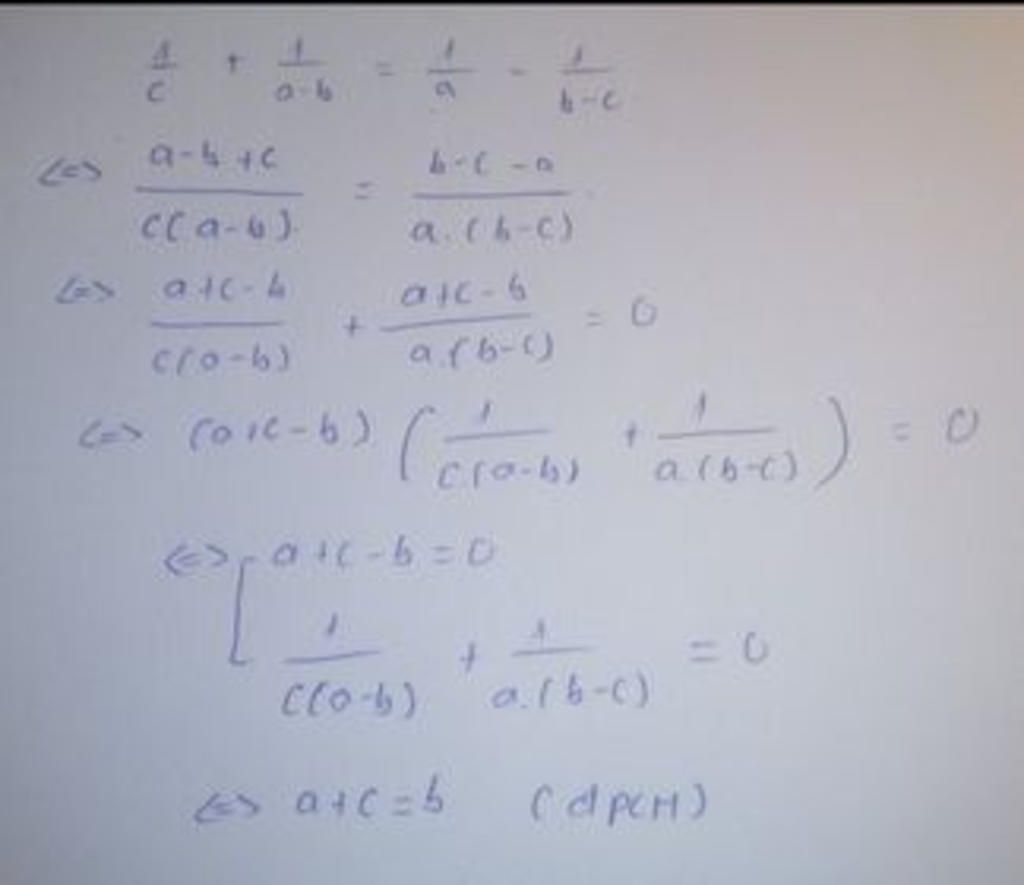 1/c + 1/(a-b) = 1/a - 1/(b-c)
<=> (a-b+c)/(c(a-b)) = (b-c-a)/(a.(b-c))
<=> (a+c-b)/(c(a-b)) + (a+c-b)/(a.(b-c)) = 0
<=> (a+c-b) (1/(c.(a-b)) + 1/(a.(b-c))) = 0
<=> [ a+c-b = 0
1/(c(a-b)) + 1/(a.(b-c)) = 0
<=> a+c = b (dpcM)